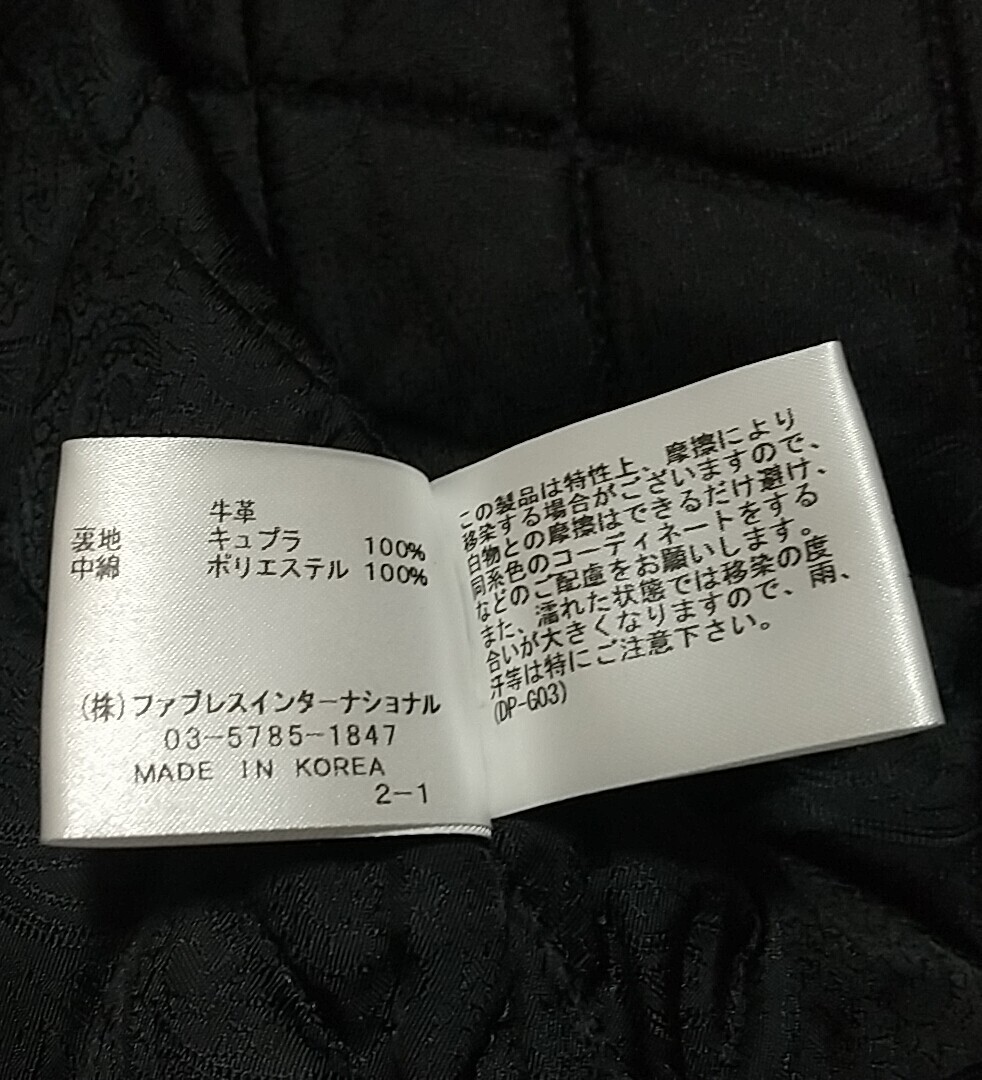 牛革
裏地 キュプラ 100%
中綿 ポリエステル 100%
(株)ファブレスインターナショナル
03-5785-1847
MADE IN KOREA
2-1
この製品は特性上、摩擦により
移染する場合がございますので、
白物との摩擦はできるだけ避け、
同系色のコーディネートをする
などのご配慮をお願いします。
また、濡れた状態では移染の度
合いが大きくなりますので、雨、
汗等は特にご注意下さい。
(DP-G03)